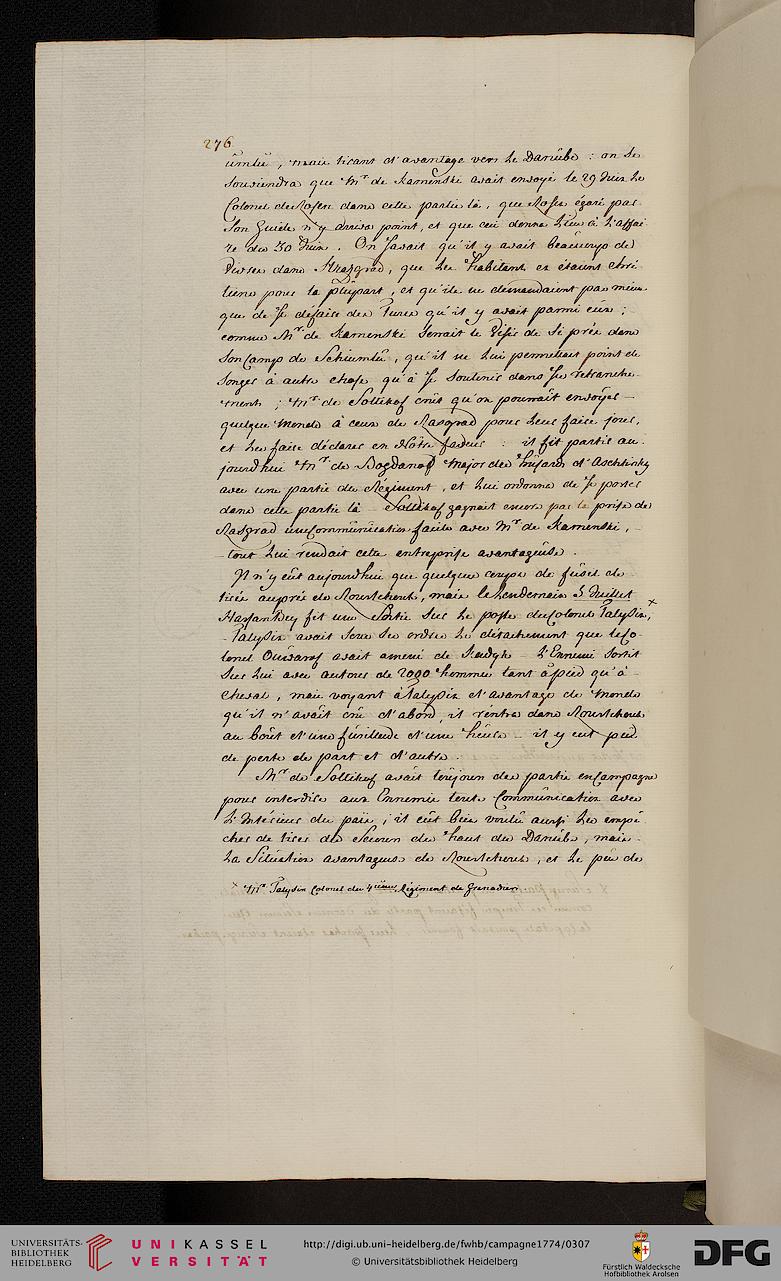 276
ümlü, mais tirant d'avantage vers le Danübe : on se
souviendra que Mr de Kamenski avait envoyé le 29 Juin le
Colonel de Rosen dans cette partie là, que Rosen égaré par
son Guide n'y arriva point, et que ceci donna Lieu à L'affai-
re du 30 Juin. On savait qu'il y avait beaucoup de
Vivres dans Hrasgrad, que les habitants en étaient chré-
tiens pour la plûpart, et qu'ils ne demandaient pas mieux
que de se défaire des Turcs qu'il y avait parmi eux ;
comme Mr de Kamenski serrait le Visir de si près dans
son Camp de Schiumlü, qu'il ne lui permettait point de
songer à autre chose qu'à se soutenir dans ses retranche-
ments ; Mr de Soltikof crût qu'on pourrait envoyer
quelque monde à ceux de Rasgrad pour leur faire jour,
et les faire déclarer en Nôtre faveur : il fit partir au-
jourdhui Mr de Bogdanof Major des husards d'Aschtirsky
avec une partie du Régiment, et lui ordonna de se porter
dans cette partie là - Soltikof gagnait encore par la prise de
Rasgrad une Communication facile avec Mr de Kamenski,
tout lui rendait cette entreprise avantageuse.
Il n'y eût aujourdhui que quelques coups de füsil de
tirés auprès de Rourtchouk, mais le Lendemain 5 Juillet
Hassan bey fit une Sortie sur le poste du Colonel Talysin, x
Talysin avait sous ses ordres le détachement que le Co-
lonel Ouvarof avait amené de Kudgk - L'Ennemi sortit
sur lui avec autour de 2000 hommes tant à pied qu'à
cheval, mais voyant à Talysin d'avantage de monde
qu'il n'avait crû d'abord, il rentra dans Rourtchouk
au bout d'une füsillade d'une heure - il y eut peu
de perte de part et d'autre.
Mr de Soltikof avait toûjours des partis en Campagne
pour interdire aux Ennemis toute Communication avec
L'Intérieur du païs ; il eût bien voulû aussi les empê-
cher de tirer du Secours du haut du Danübe, mais
La Situation avantageuse de Rourtchouk, et le peu de
x Mr Talysin Colonel du 4ieme Régiment de Grenadiers
UNIVERSITÄTS-
BIBLIOTHEK
HEIDELBERG
UNIKASSEL
VERSITÄT
http://digi.ub.uni-heidelberg.de/fwhb/campagne1774/0307
© Universitätsbibliothek Heidelberg
Fürstlich Waldecksche
Hofbibliothek Arolsen
DFG